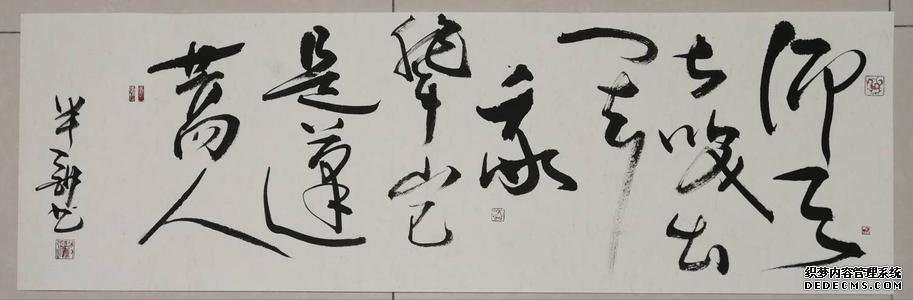 仰天
大笑出
门去
我
辈岂
是蓬
蒿人
半书
织梦内容管理系统
DEDECMS.COM